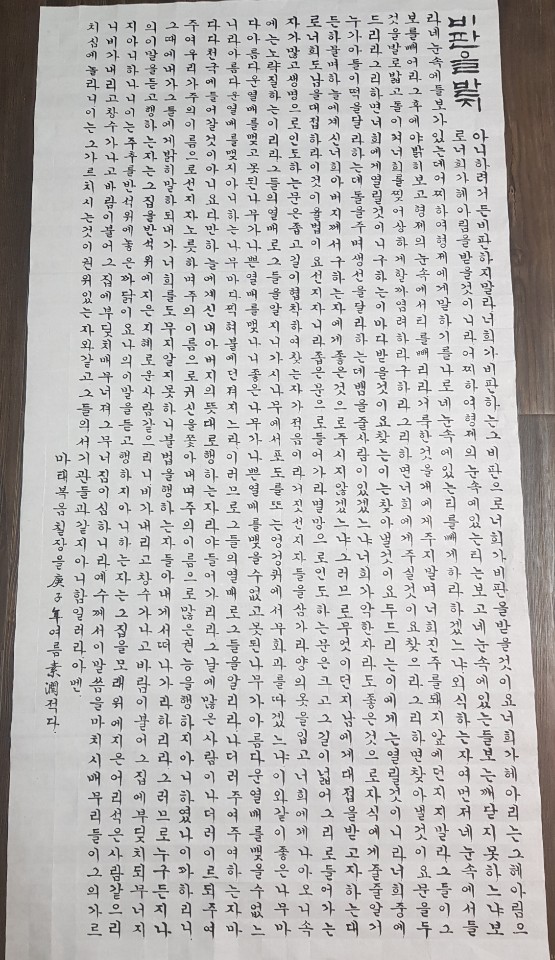 비판을받지
아니하려거든비판하지말라너희가비판하는그비판으로너희가비판을받을것이요너희가헤아리는그헤아림으
로너희가헤아림을받을것이니라어찌하여형제의눈속에있는티는보고네눈속에있는들보는깨닫지못하느냐보
라네눈속에들보가있는데어찌하여형제에게말하기를나로네눈속에있는티를빼게하라하겠느냐외식하는자여먼저네눈속에서들
보를빼어라그후에야밝히보고형제의눈속에서티를빼리라거룩한것을개에게주지말며너희진주를돼지앞에던지지말라그들이그
것을발로밟고돌이켜너희를찢어상하게할까염려하라구하라그리하면너희에게주실것이요찾으라그리하면찾아낼것이요문을두
드리라그리하면너희에게열릴것이니구하는이마다받을것이요찾는이는찾아낼것이요두드리는이에게는열릴것이니라너희중에
누가아들이떡을달라하는데돌을주며생선을달라하는데뱀을줄사람이있겠느냐너희가악한자라도좋은것으로자식에게줄줄알거
든하물며하늘에계신너희아버지께서구하는자에게좋은것으로주시지않겠느냐그러므로무엇이든지남에게대접을받고자하는대
로너희도남을대접하라이것이율법이요선지자니라좁은문으로들어가라멸망으로인도하는문은크고그길이넓어그리로들어가는
자가많고생명으로인도하는문은좁고길이협착하여찾는자가적음이라거짓선지자들을삼가라양의옷을입고너희에게나아오나속
에는노략질하는이리라그들의열매로그들을알지니가시나무에서포도를또는엉겅퀴에서무화과를따겠느냐이와같이좋은나무마
다아름다운열매를맺고못된나무가나쁜열매를맺나니좋은나무가나쁜열매를맺을수없고못된나무가아름다운열매를맺을수없느
니라아름다운열매를맺지아니하는나무마다찍혀불에던져지느니라이러므로그들의열매로그들을알리라나더러주여주여하는자마
다다천국에들어갈것이아니요다만하늘에계신내아버지의뜻대로행하는자라야들어가리라그날에많은사람이나더러이르되주여
주여우리가주의이름으로선지자노릇하며주의이름으로귀신을쫓아내며주의이름으로많은권능을행하지아니하였나이까하리니
그때에내가그들에게밝히말하되내가너희를도무지알지못하니불법을행하는자들아내게서떠나가라하리라그러므로누구든지나
의이말을듣고행하는자는그집을반석위에지은지혜로운사람같으리니비가내리고창수가나고바람이불어그집에부딪치되무너지
지아니하나니이는주추를반석위에놓은까닭이요나의이말을듣고행하지아니하는자는그집을모래위에지은어리석은사람같으리
니비가내리고창수가나고바람이불어그집에부딪치매무너져그무너짐이심하니라예수께서이말씀을마치시매무리들이그의가르
치심에놀라니이는그가르치시는것이권위있는자와같고그들의서기관들과같지아니함일러라아멘
마태복음칠장을庚子年여름素潤적다.